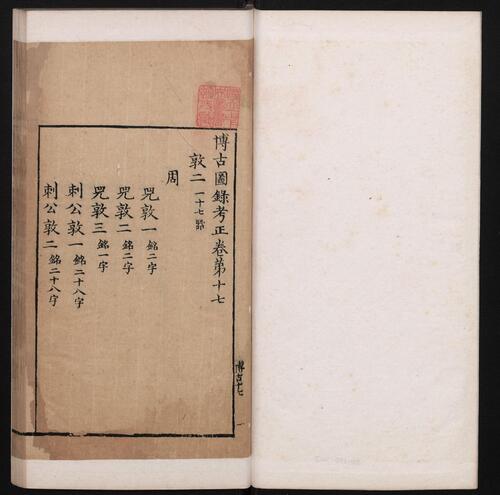 博古圖錄考正卷第十七
敦二 一十七器
周
兕敦一 銘二字
兕敦二 銘二字
兕敦三 銘一字
刺公敦一 銘二十八字
刺公敦二 銘二十八字
博古十七